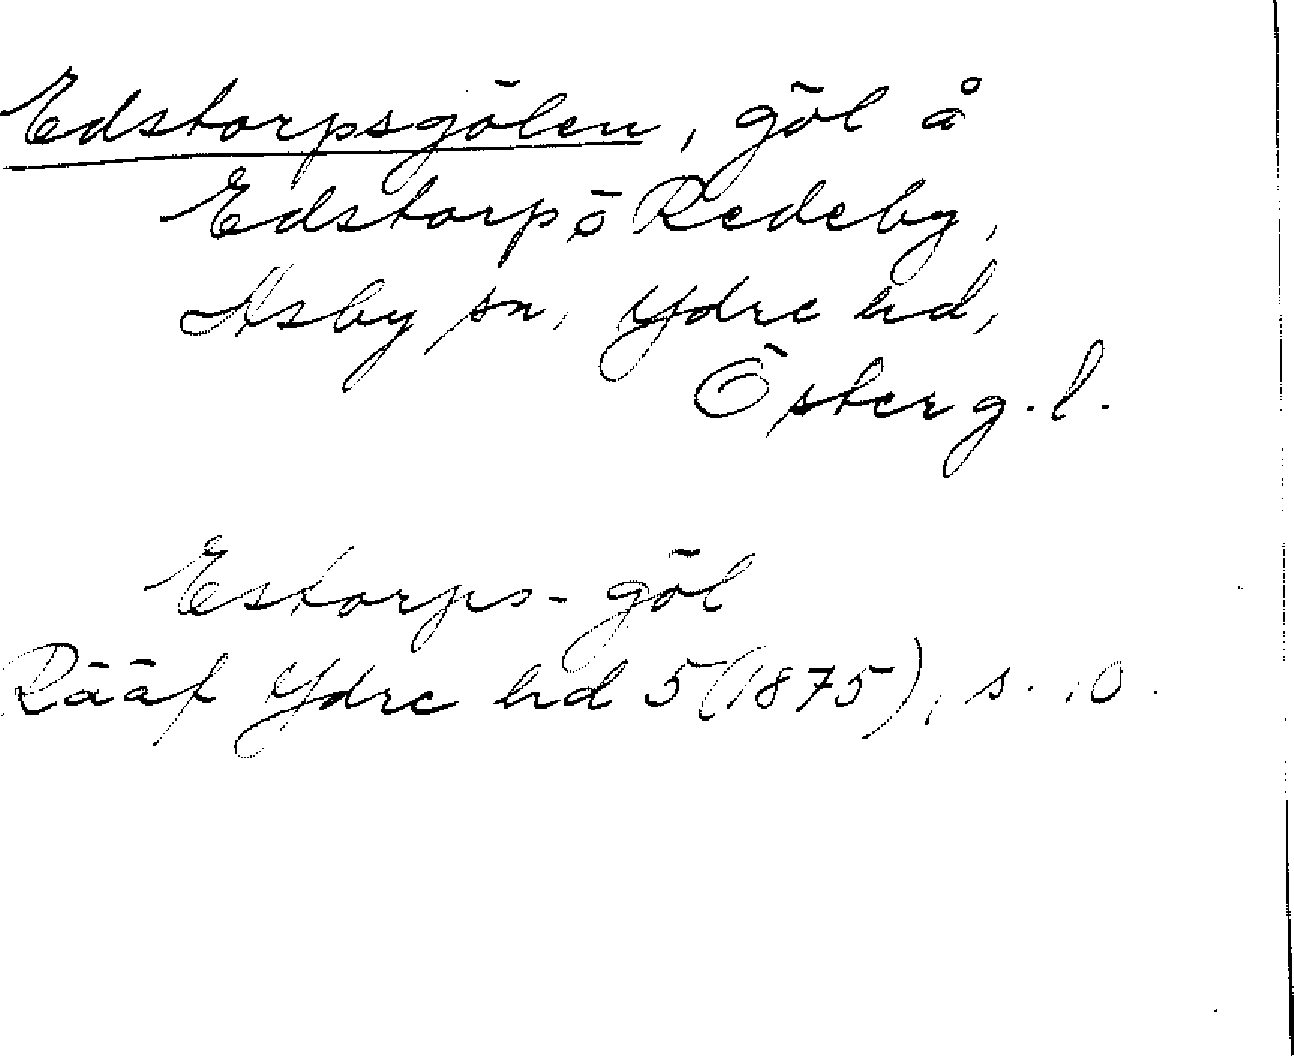 Edstorpsgölen, göl å
Edstorp, ö Redeby,
Asby sn, Ydre hd,
Österg. l.
Estorps-göl
Rääf Ydre hd 5 (1875), s. 10.